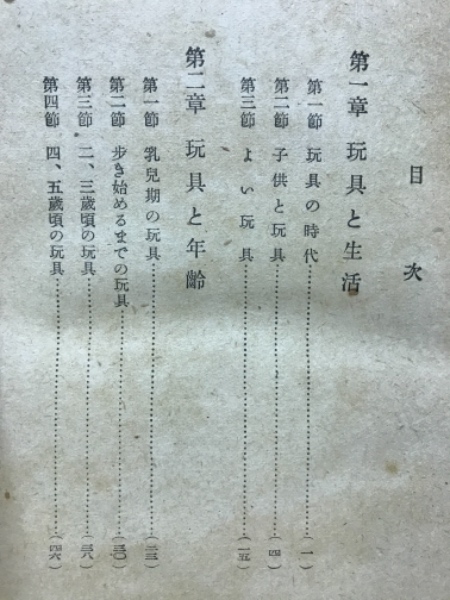 目次
第一章 玩具と生活
第一節 玩具の時代……………………(一)
第二節 子供と玩具……………………(四)
第三節 よい玩具……………………(一五)
第二章 玩具と年齡
第一節 乳兒期の玩具……………………(二三)
第二節 步き始めるまでの玩具……………………(三〇)
第三節 二、三歲頃の玩具……………………(三八)
第四節 四、五歲頃の玩具……………………(四六)